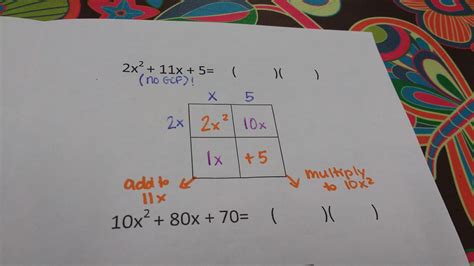 2x² + 11x + 5= (     )(     )
(no GCF)!
x 5
2x 2x² 10x
1x +5
add to
11x
multiply
to 10x²
10x² + 80x + 70= (     )(     )